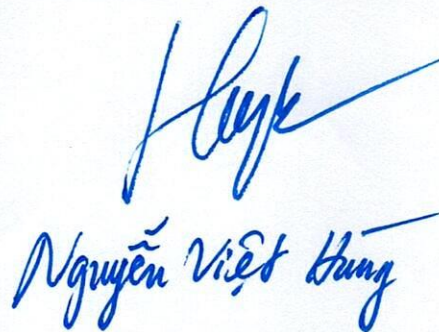 Nguyễn Việt Hùng